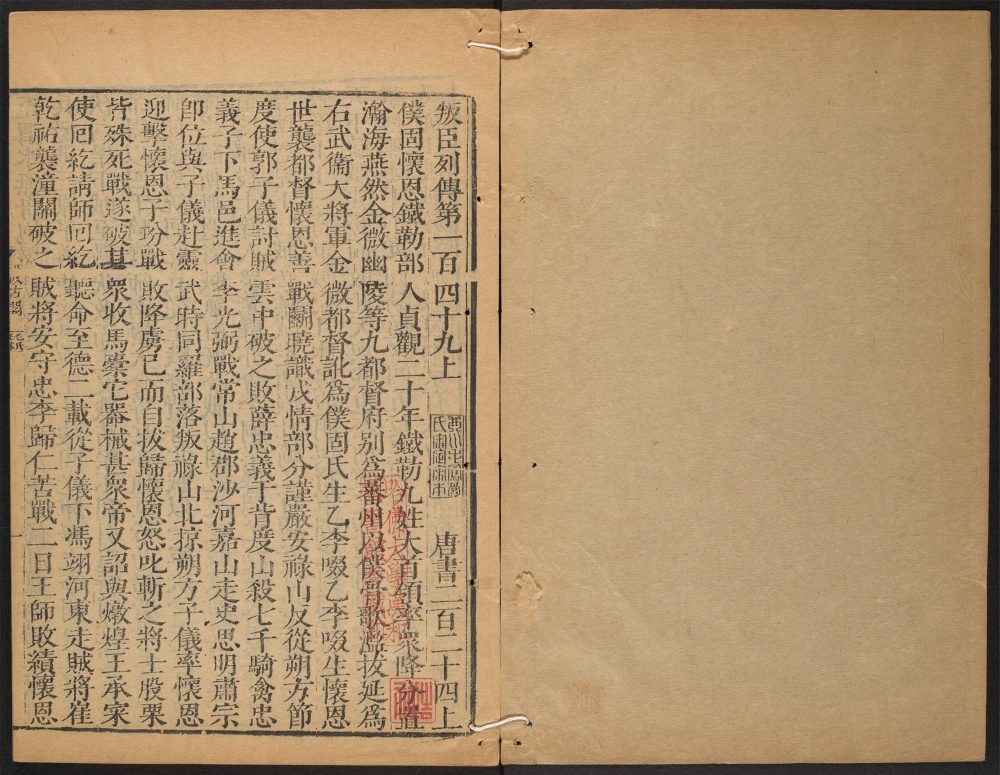 叛臣列傳第一百四十九上
琴川毛鳳苞
氏審定宋本
唐書二百二十四上
僕固懷恩鐵勒部人貞觀二十年鐵勒九姓大首領率衆降分置
瀚海燕然金微幽陵等九都督府別爲蕃州以僕骨歌濫拔延爲
右武衞大將軍金微都督訛爲僕固氏生乙李啜乙李啜生懷恩
世襲都督懷恩善戰鬬曉識戎情部分謹嚴安祿山反從朔方節
度使郭子儀討賊雲中破之敗薛忠義于背度山殺七千騎禽忠
義子下馬邑進會李光弼戰常山趙郡沙河嘉山走史思明肅宗
卽位與子儀赴靈武時同羅部落叛祿山北掠朔方子儀率懷恩
迎擊懷恩子玢戰敗降虜已而自拔歸懷恩怒叱斬之將士股栗
皆殊死戰遂破其衆收馬橐它器械甚衆帝又詔與燉煌王承寀
使回紇請師回紇聽命至德二載從子儀下馮翊河東走賊將崔
乾祐襲潼關破之賊將安守忠李歸仁苦戰二日王師敗績懷恩
哈佛大學漢和